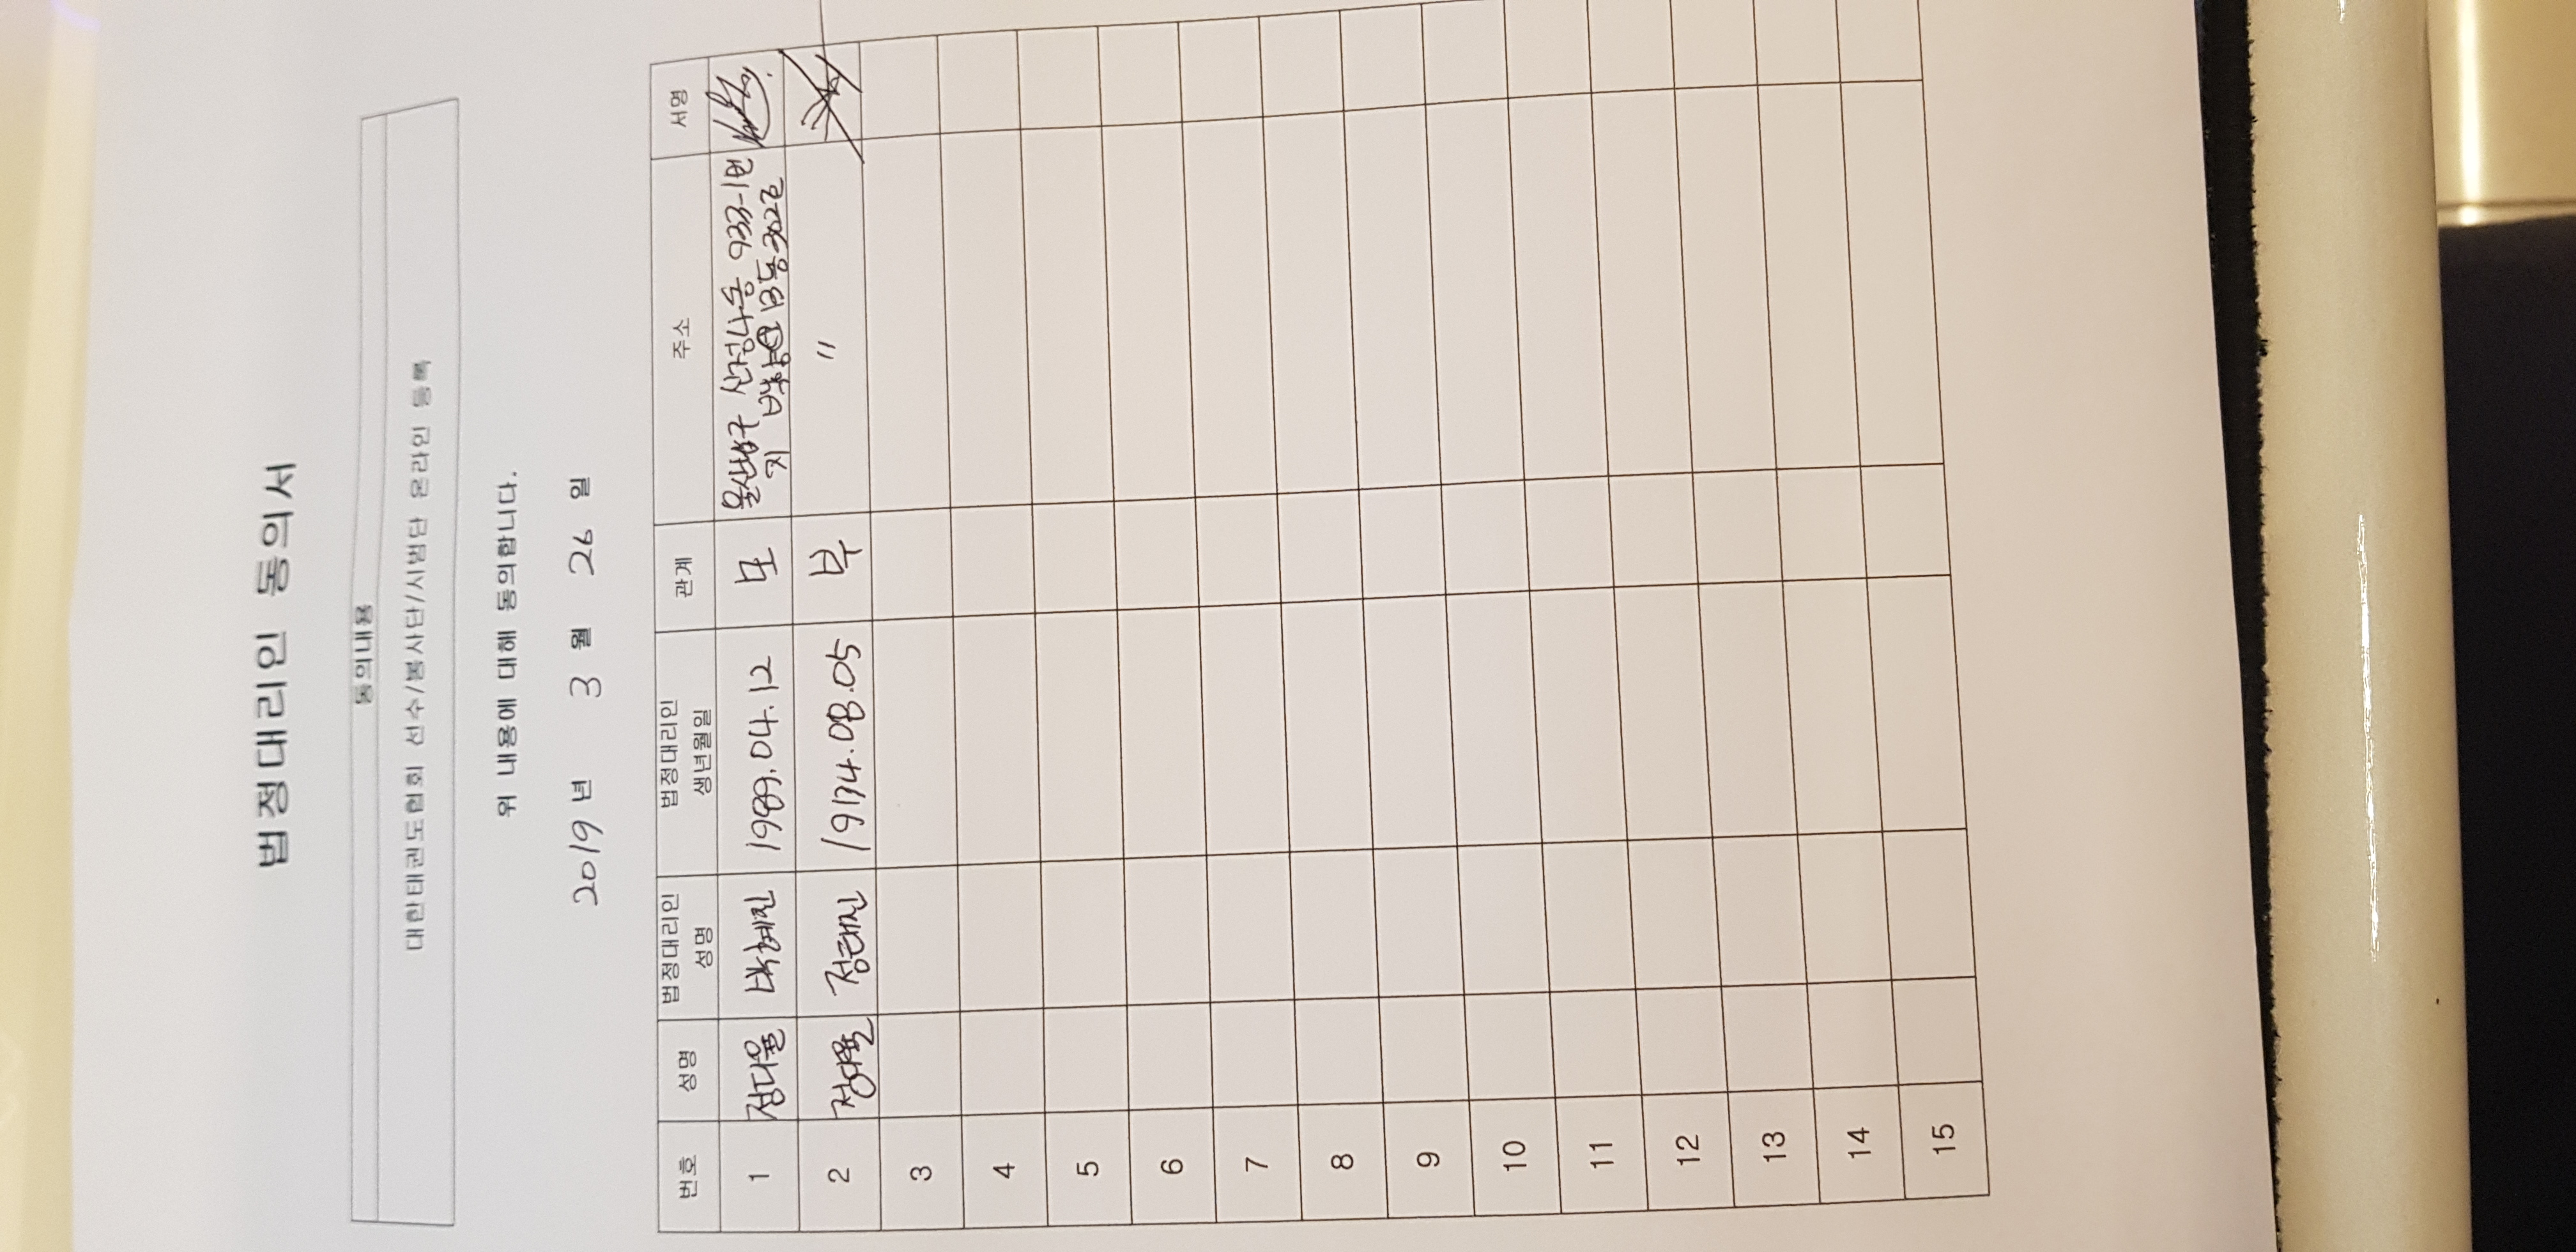 법정대리인 동의서
동의내용
대한태권도협회 선수/봉사단/시범단 온라인 등록
위 내용에 대해 동의합니다.
2019 년 3 월 26 일
번호 성명 법정대리인 성명 법정대리인 생년월일 관계 주소 서명
1 정다율 1989.04.12 모
2 정태진 부 〃
3
4
5
6
7
8
9
10
11
12
13
14
15